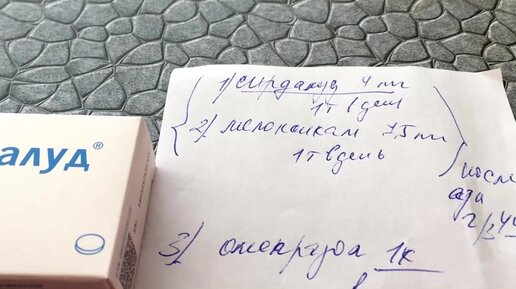 алуд®
1) сирдалуд 4 мг
1т 1 день
2) мелоксикам 7,5 мг
1т в день
после
еды
3) омепразол 1к